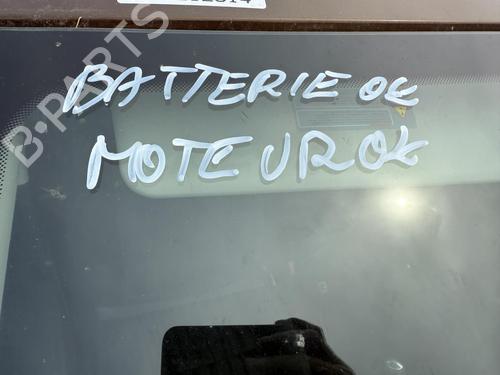 BATTERIE OK
MOTEUR OK
B-PARTS